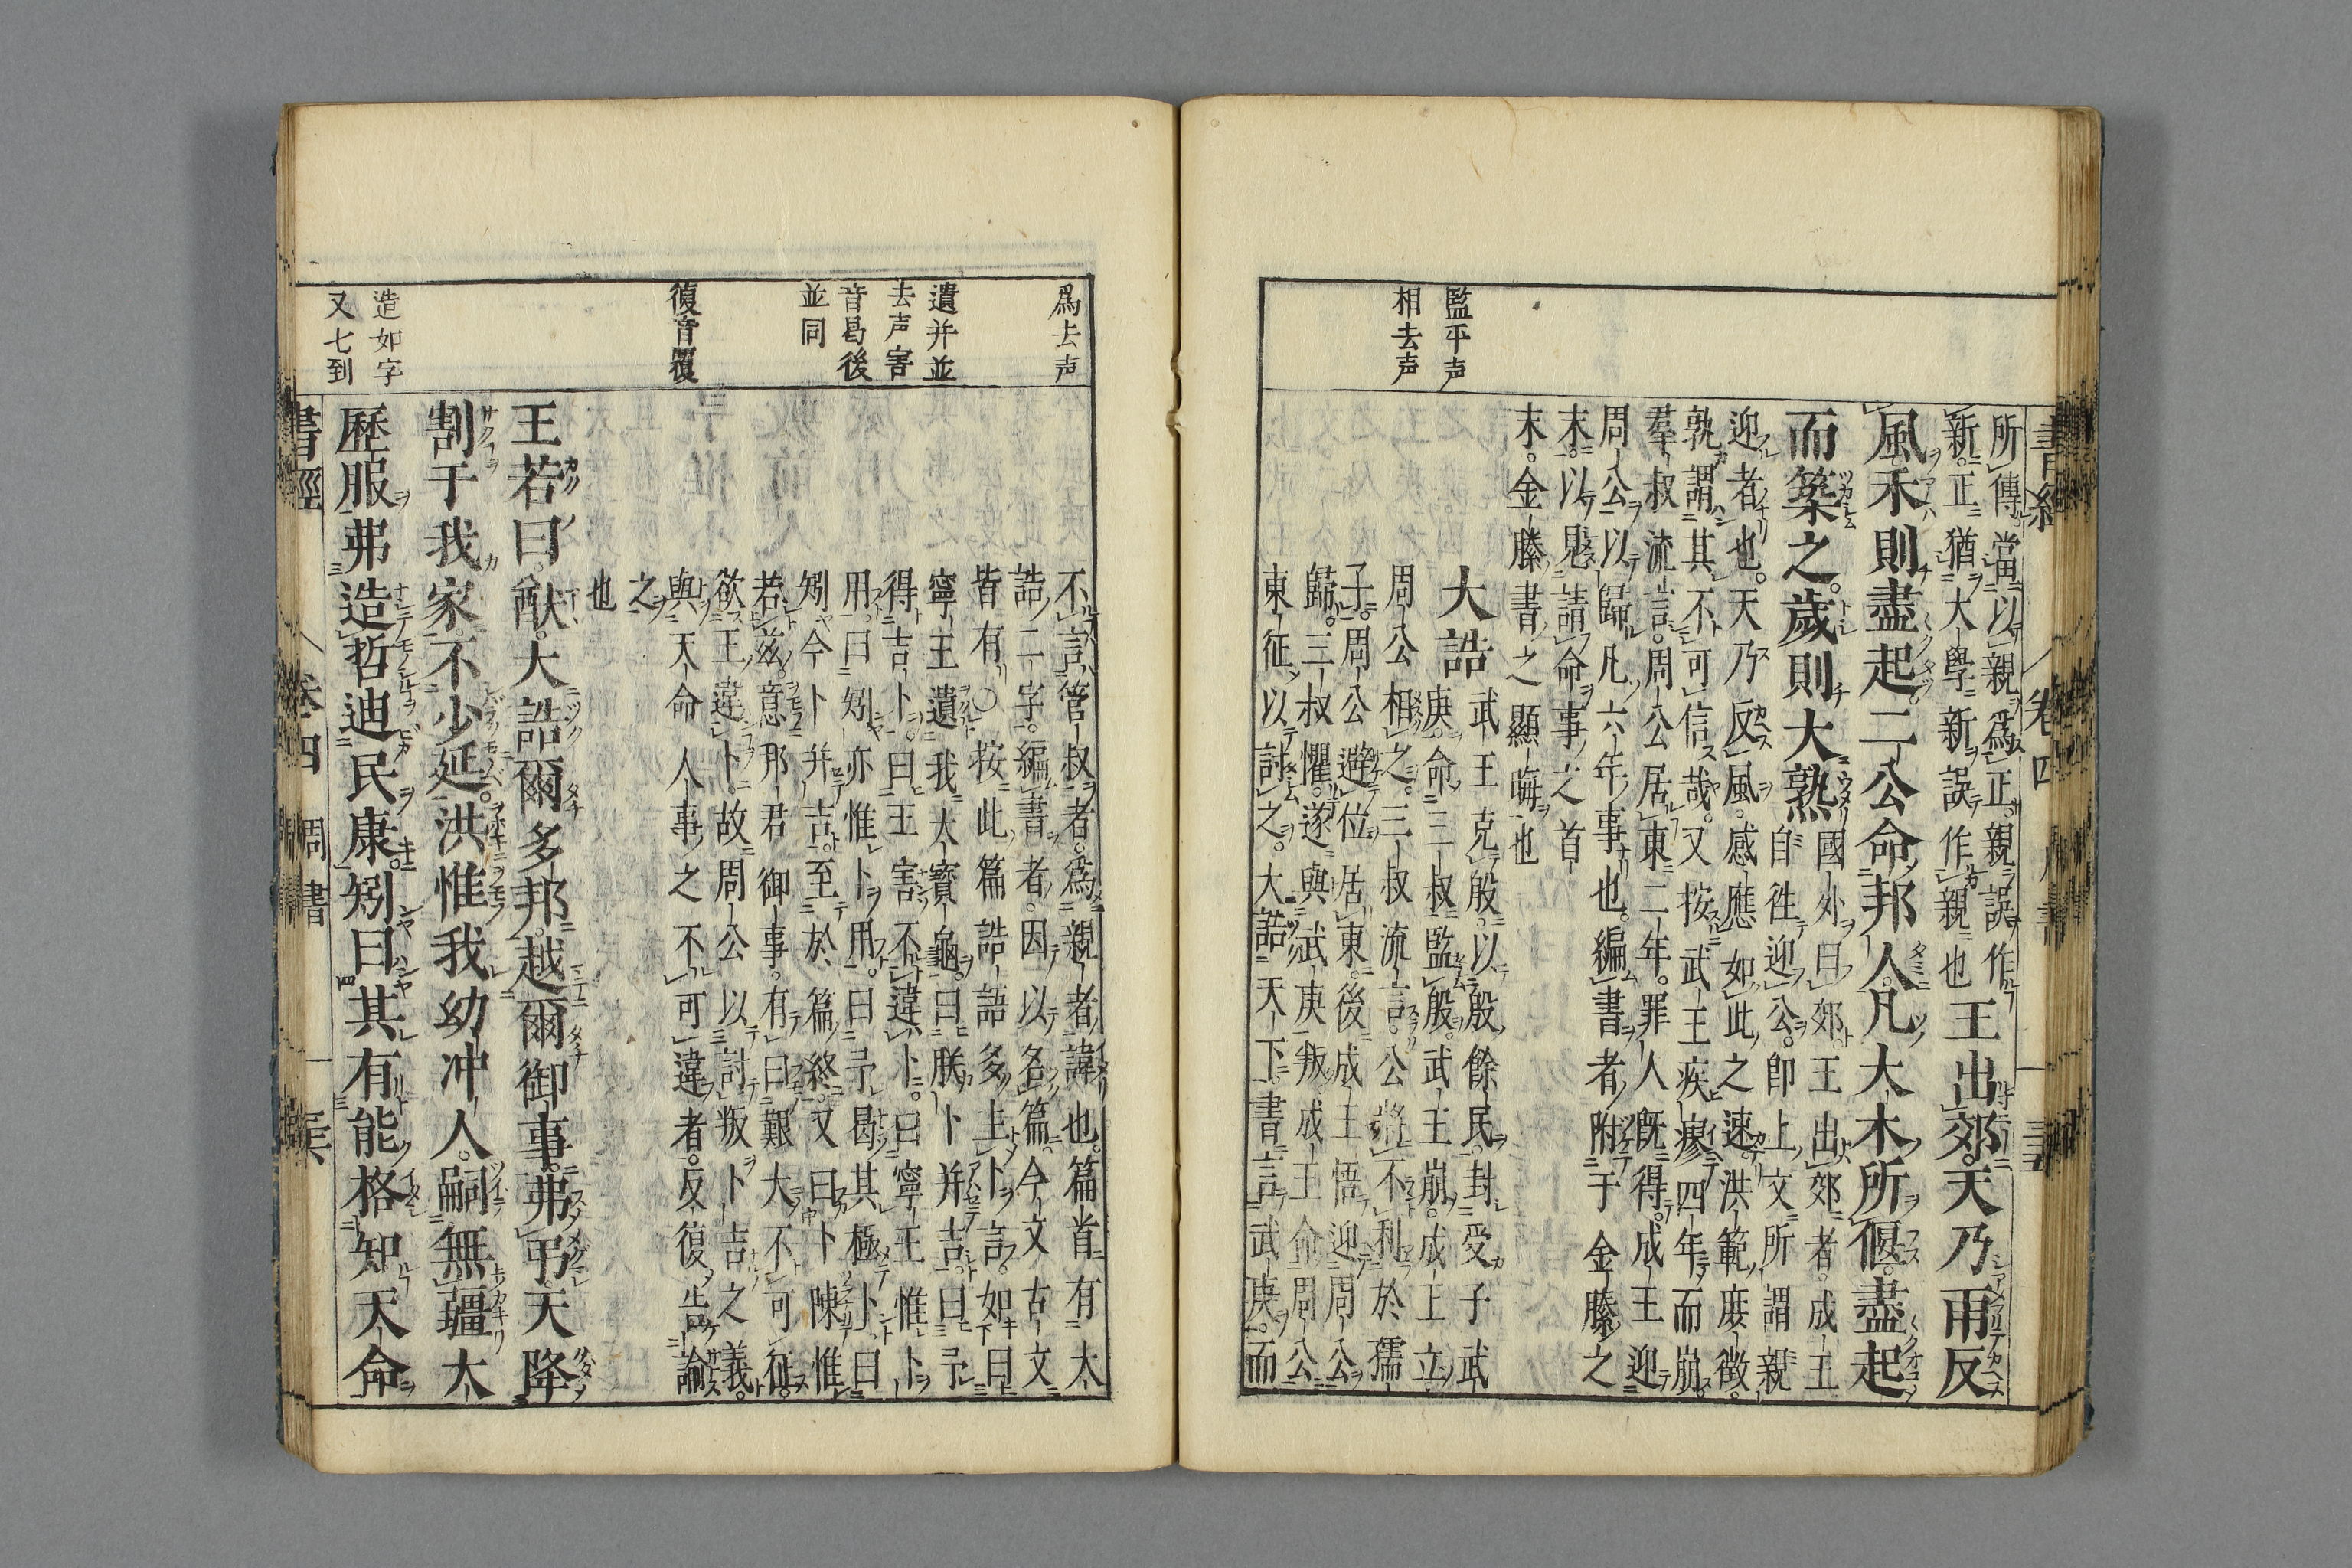 書經 卷四 周書
監平声
相去声
所傳當以親爲正親誤作
新正猶大學新誤作親也王出郊天乃雨反
風禾則盡起二公命邦人凡大木所偃盡起
而築之歲則大熟國外曰郊王出郊者成王
自往迎公卽上文所謂親
迎者也天乃反風感應如此之速洪範庶徵
孰謂其不可信哉又按武王疾瘳四年而崩
羣叔流言周公居東二年罪人旣得成王迎
周公以歸凡六年事也編書者附于金縢之
末以見請命事之首
末金縢書之顯晦也
大誥武王克殷以殷餘民封受子武
庚命三叔監殷武王崩成王立
周公相之三叔流言公將不利於孺
子周公避位居東後成王悟迎周公
歸三叔懼遂與武庚叛成王命周公
東征以討之大誥天下書言武庚而
爲去声
遺并並
去声害
音曷後
並同
復音覆
造如字
又七到
不言管叔者爲親者諱也篇首有大
誥二字編書者因以名篇今文古文
皆有〇按此篇誥語多主卜言如曰
寧王遺我大寶龜曰朕卜并吉曰予
得吉卜曰王害不違卜曰寧王惟卜
用曰矧亦惟卜用曰予曷其極卜曰
矧今卜并吉至於篇終又曰卜陳惟
若茲意邦君御事有曰艱大不可征
欲王違卜故周公以討叛卜吉之義
與天命人事之不可違者反復誥諭
之
也
王若曰猷大誥爾多邦越爾御事弗弔天降
割于我家不少延洪惟我幼冲人嗣無疆大
歷服弗造哲迪民康矧曰其有能格知天命
書經 卷四 周書